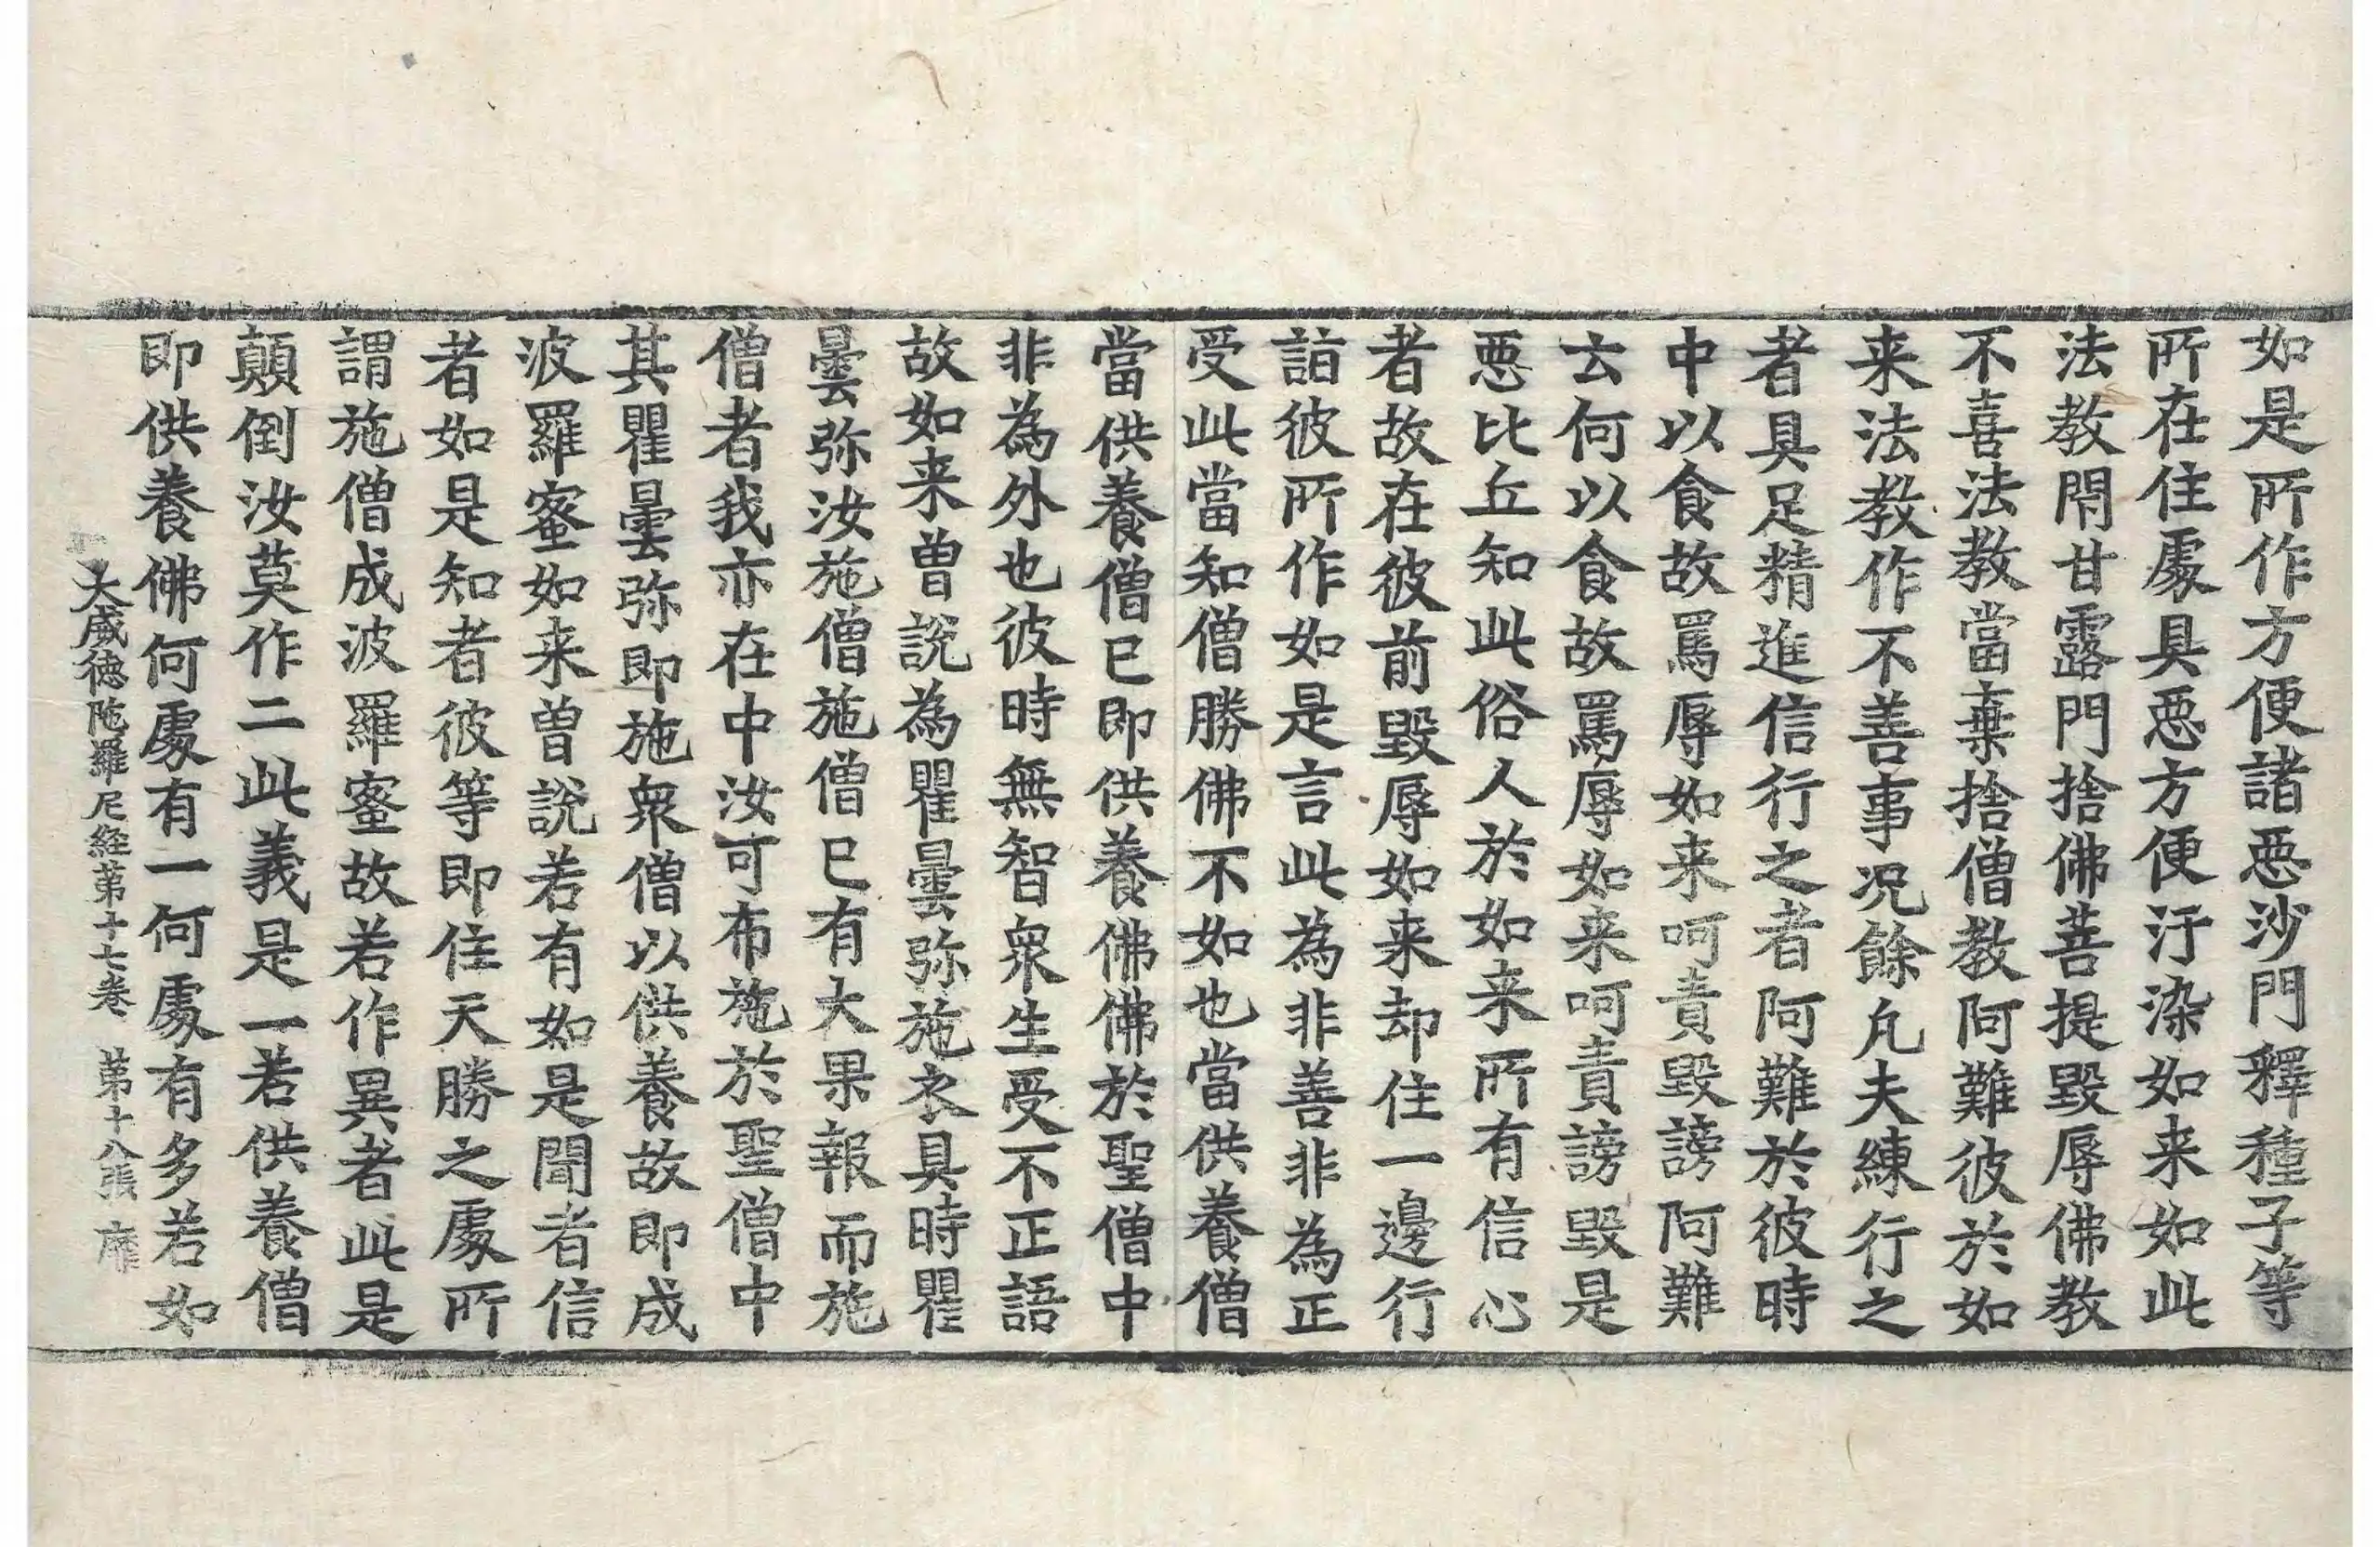 如是所作方便諸惡沙門釋種子等
所在住處具惡方便汙染如来如此
法教閇甘露門捨佛菩提毀辱佛教
不喜法教當棄捨僧教阿難彼於如
来法教作不善事况餘凡夫練行之
者具足精進信行之者阿難於彼時
中以食故罵辱如来呵責毀謗阿難
云何以食故罵辱如来呵責謗毀是
惡比丘知此俗人於如来所有信心
者故在彼前毀辱如来却住一邊行
詣彼所作如是言此為非善非為正
受此當知僧勝佛不如也當供養僧
當供養僧已即供養佛佛於聖僧中
非為外也彼時無智衆生受不正語
故如来曽說為瞿曇弥施衣具時瞿
曇弥汝施僧施僧已有大果報而施
僧者我亦在中汝可布施於聖僧中
其瞿曇弥即施衆僧以供養故即成
波羅蜜如来曽說若有如是聞者信
者如是知者彼等即住天勝之處所
謂施僧成波羅蜜故若作異者此是
顛倒汝莫作二此義是一若供養僧
即供養佛何處有一何處有多若如
大威徳陁羅尼経苐十七巻 苐十八張 靡